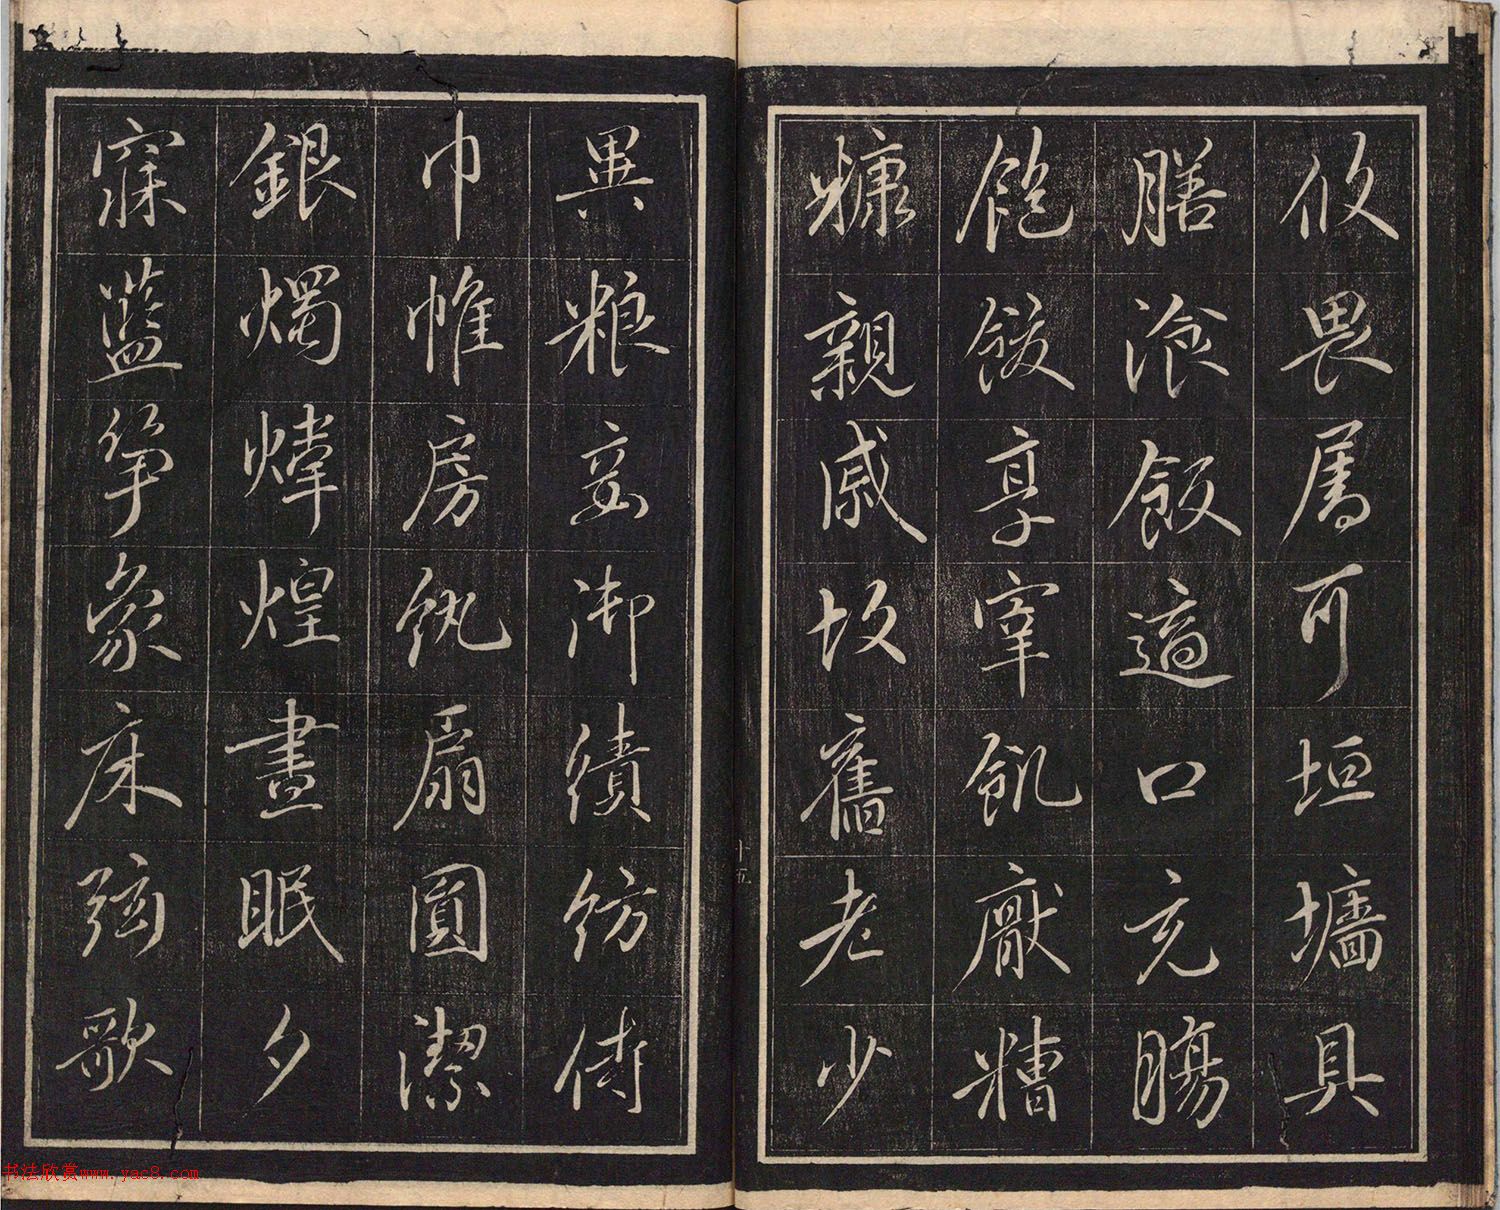 攸畏属耳垣墻具
膳飡飯適口充腸
飽飫享宰飢厭糟
糠親戚故舊老少
十五
異粮妾御績紡侍
巾帷房紈扇圓潔
銀燭煒煌晝眠夕
寐藍笋象床弦歌
书法欣赏www.yac8.com